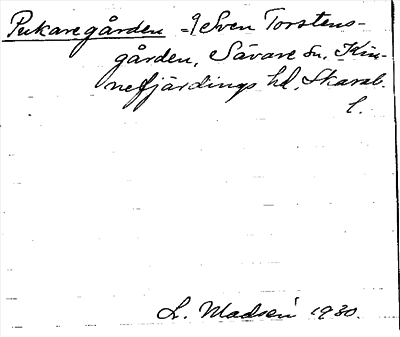 Pukaregården = Sven Torstens-
gården, Sävare sn, Kin-
nefjärdings hd, Skarab.
l.
L. Madsen 1930.